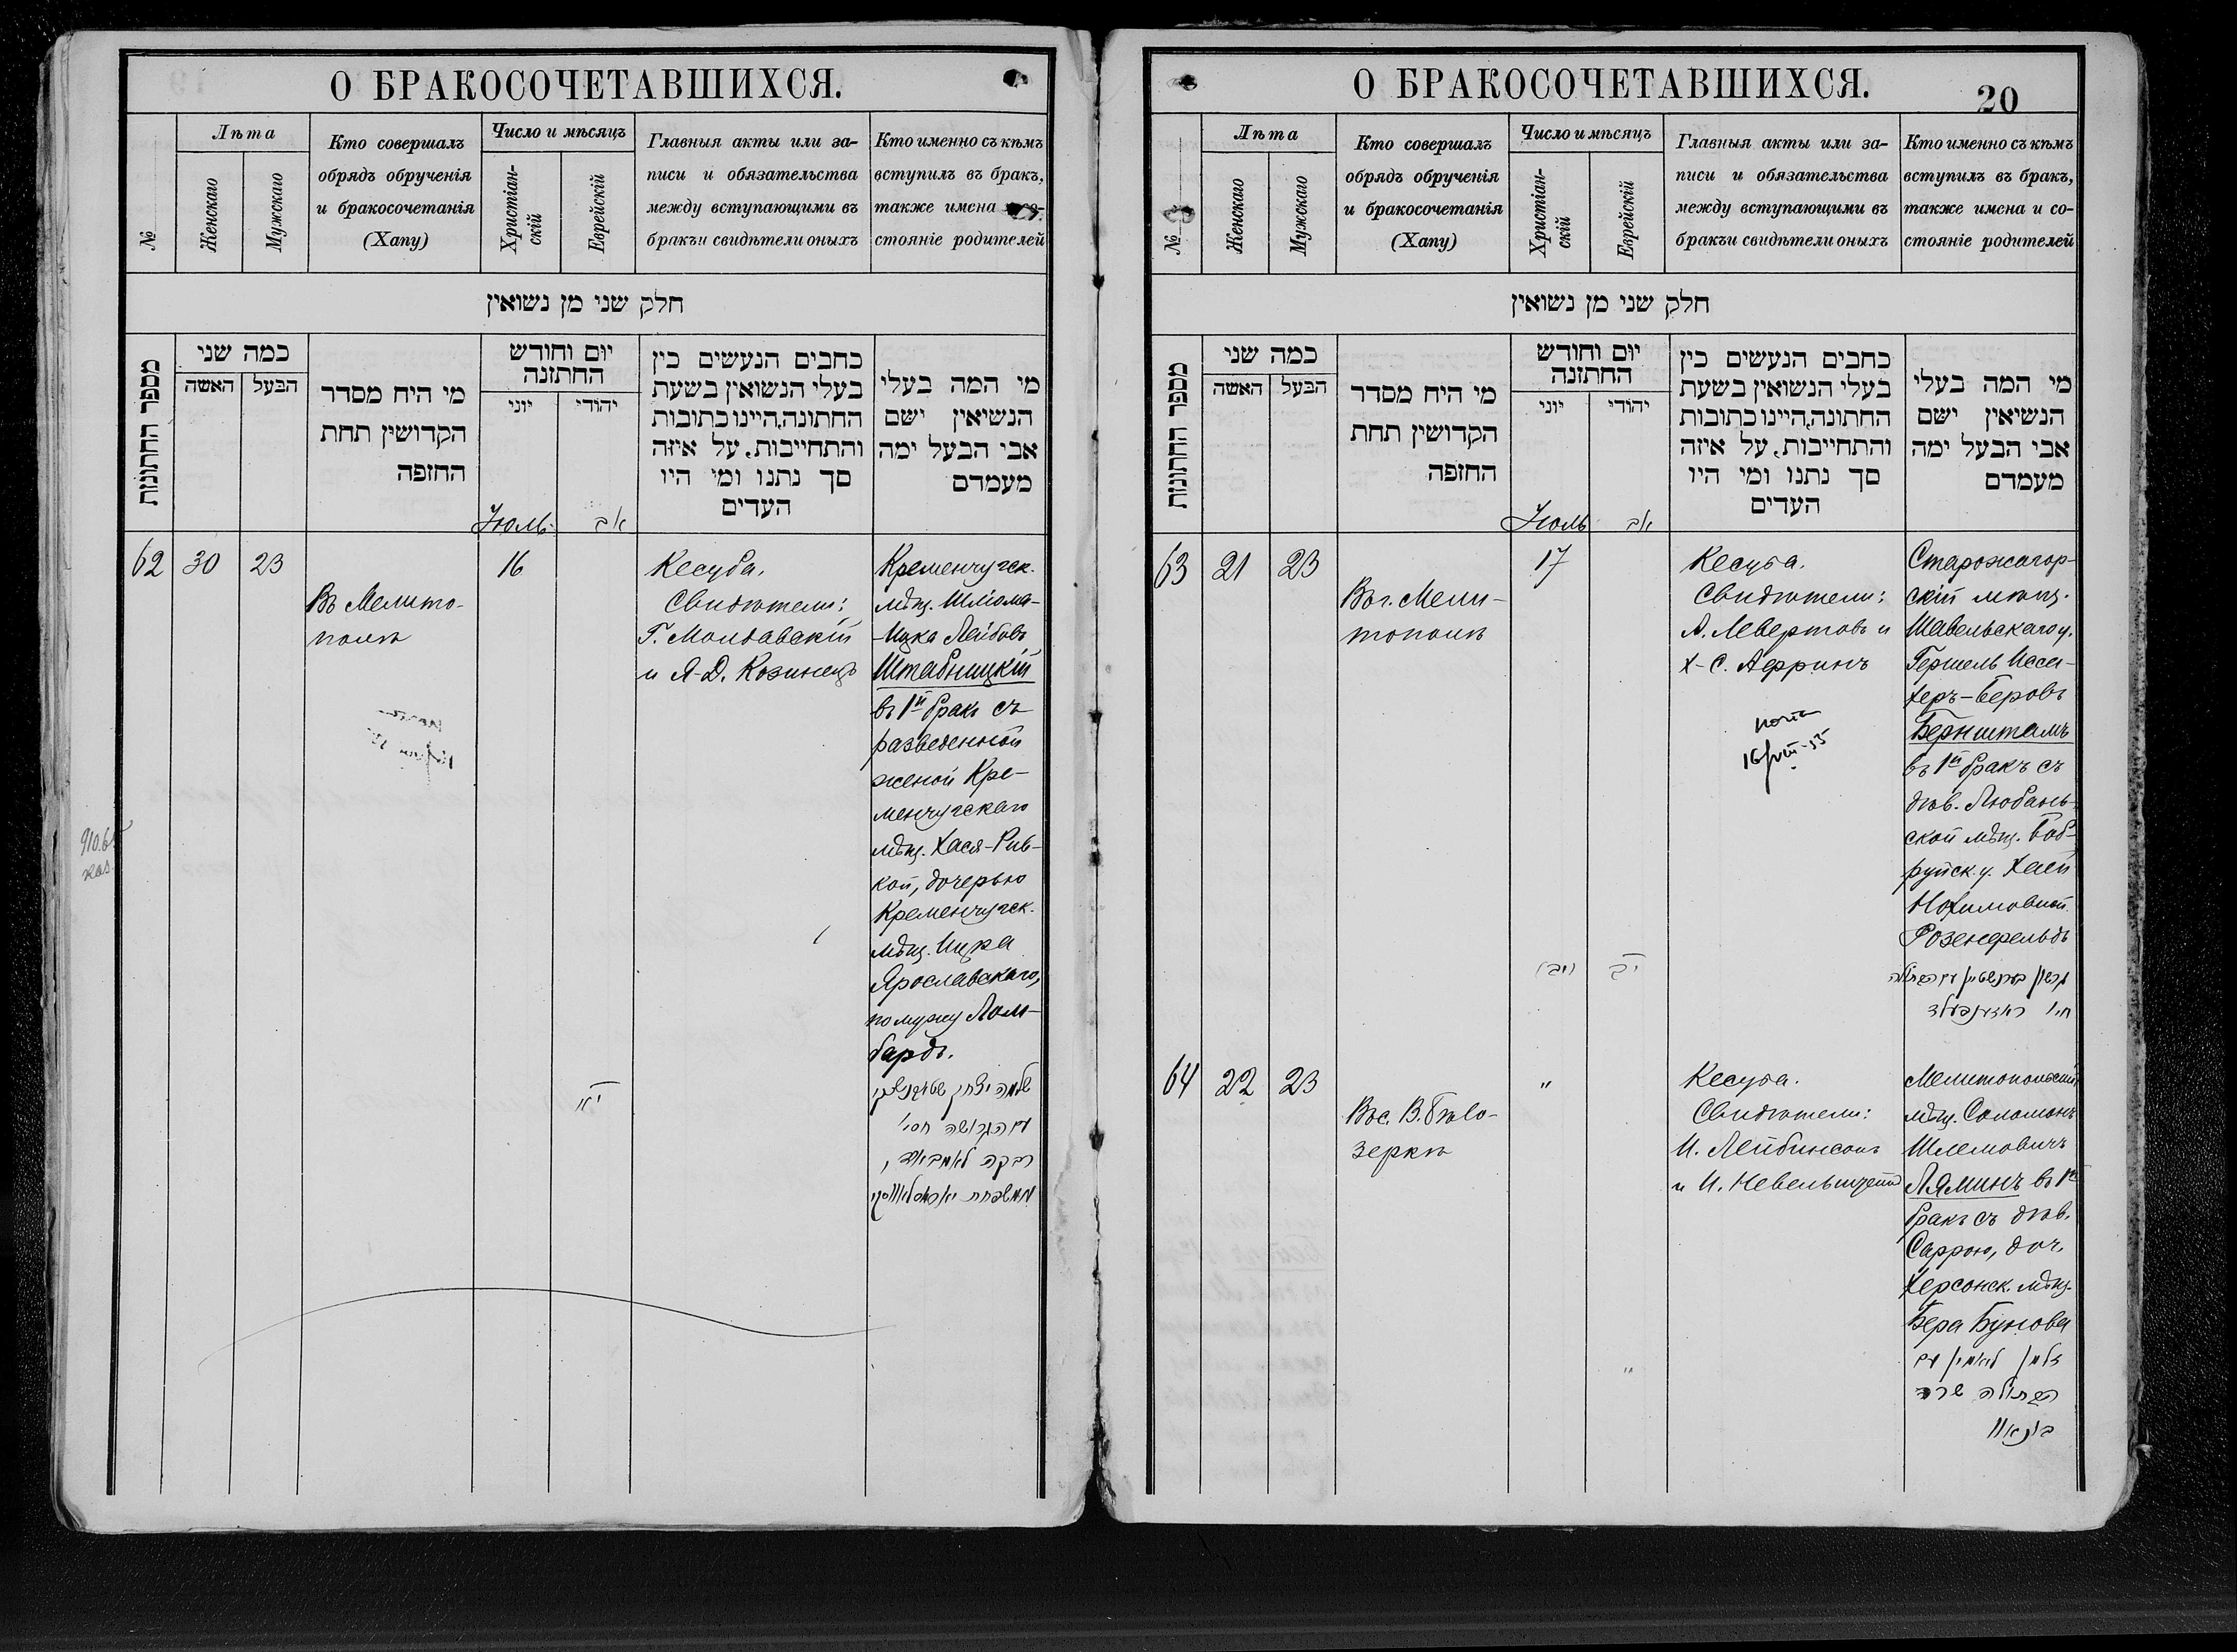 О БРАКОСОЧЕТАВШИХСЯ.
№
Лѣта
Женскаго
Мужскаго
Кто совершалъ
обрядъ обрученія
и бракосочетанія
(Хапу)
Число и мѣсяцъ
Христіан-
скій
Еврейскій
Главныя акты или за-
писи и обязательства
между вступающими въ
бракъи свидѣтели оныхъ
Кто именно съ кѣмъ
вступилъ въ бракъ,
также имена
стояніе родителей
חלק שני מן נשואין
מספר החתונות
כמה שני
האשה
הבעל
מי היח מסדר
הקדושין תחת
החזפה
יום וחודש
החתזנה
יוני
יהודי
כחבים הנעשים כין
בעלי הנשואין בשעת
החתונה,היינו כתובות
והתחייבות, על איזה
סך נתנו ומי היו
העדים
מי המה בעלי
הנשיאין ישם
אבי הבעל ימה
מעמדם
Іюль
אב
62
30
23
Въ Мелито-
полѣ
16
Кесуба.
Свидѣтели:
Г. Молдавскій
и Я-Д. Козинецъ
Кременчугск.
мѣщ. Шліома-
-Ицка Лейбовъ
Штабницкій
въ 1й бракъ съ
разведенной
женой Кре-
менчугскаго
мѣщ. Хася-Рив-
кой, дочерью
Кременчугск.
мѣщ. Ицка
Ярославскаго,
по мужу Лом-
бардъ.
יא
שלמה יצחק
עם הגרושה חסי'
רבקה לאמבארד,
ממשפחת
910.6
О БРАКОСОЧЕТАВШИХСЯ.
20
№
Лѣта
Женскаго
Мужскаго
Кто совершалъ
обрядъ обрученія
и бракосочетанія
(Хапу)
Число и мѣсяцъ
Христіан-
скій
Еврейскій
Главныя акты или за-
писи и обязательства
между вступающими въ
бракъи свидѣтели оныхъ
Кто именно съ кѣмъ
вступилъ въ бракъ,
также имена и со-
стояніе родителей
חלק שני מן נשואין
מספר החתונות
כמה שני
האשה
הבעל
מי היח מסדר
הקדושין תחת
החזפה
יום וחודש
החתזנה
יוני
יהודי
כחבים הנעשים כין
בעלי הנשואין בשעת
החתונה,היינו כתובות
והתחייבות, על איזה
סך נתנו ומי היו
העדים
מי המה בעלי
הנשיאין ישם
אבי הבעל ימה
מעמדם
Іюль
אב
63
21
23
Въ г. Мели-
тополѣ
17
Кесуба.
Свидѣтели:
А. Левертовъ и
Х-С. Аерринъ
Старожагор-
скій мѣщ.
Шавельскаго у.
Гершель Иссе-
херъ-Беровъ
Бернштамъ
въ 1й бракъ съ
дѣв. Любань-
ской мѣщ. Боб-
руйск. у. Хаей
Нохимовной
Розенфельдъ
(יב)
יב
עם הבתולה
חי' ראזענפעלד
64
22
23
Въ с. В. Бѣло-
зеркѣ
"
Кесуба.
Свидѣтели:
И. Лейбинсонъ
и И. Невельштейн
Мелитопольскій
мѣщ. Соломонъ
Шлемовичъ
Ляминъ въ 1й
бракъ съ дѣв.
Саррою, доч.
Херсонск. мѣщ.
Бера Бунова
"
זלמן לאמין עם
הבתולה שרה
בונאוו